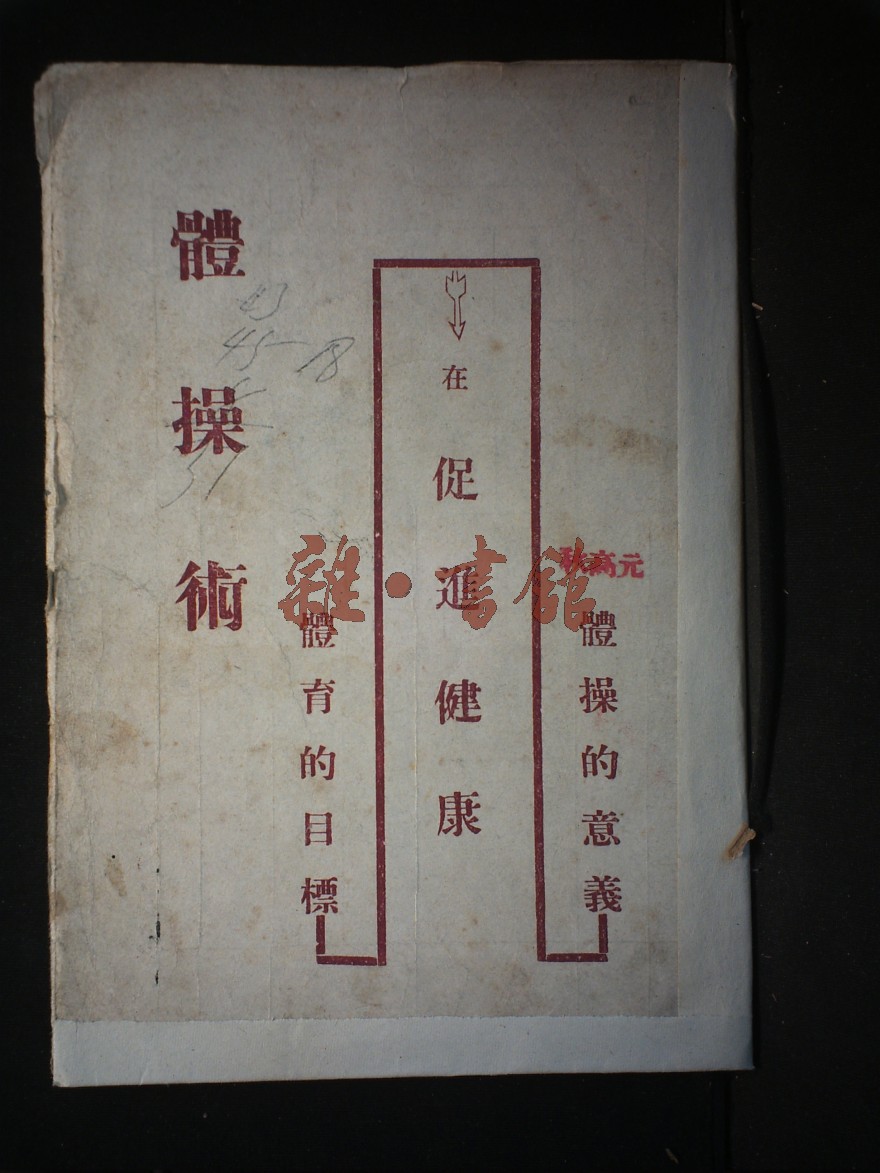 體操的意義
在促進健康
體育的目標
體操術
元高秋
雜·書館
45 18
51